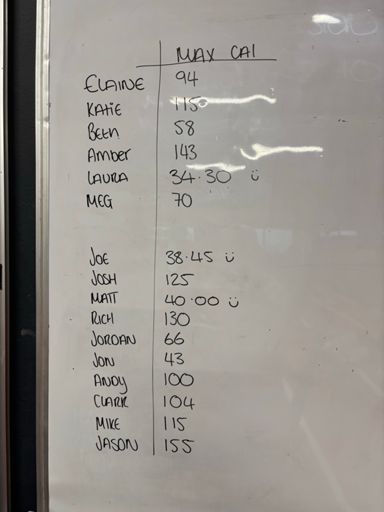 MAX CAl
ELAINE 94
KATiE 115
BETH 58
Amber 143
LAURA 34.30 ü
MEG 70
JOE 38.45 ü
JOSH 125
MATT 40.00 ü
RICH 130
JORDAN 66
JON 43
ANDY 100
CLARK 104
MIKE 115
JASON 155